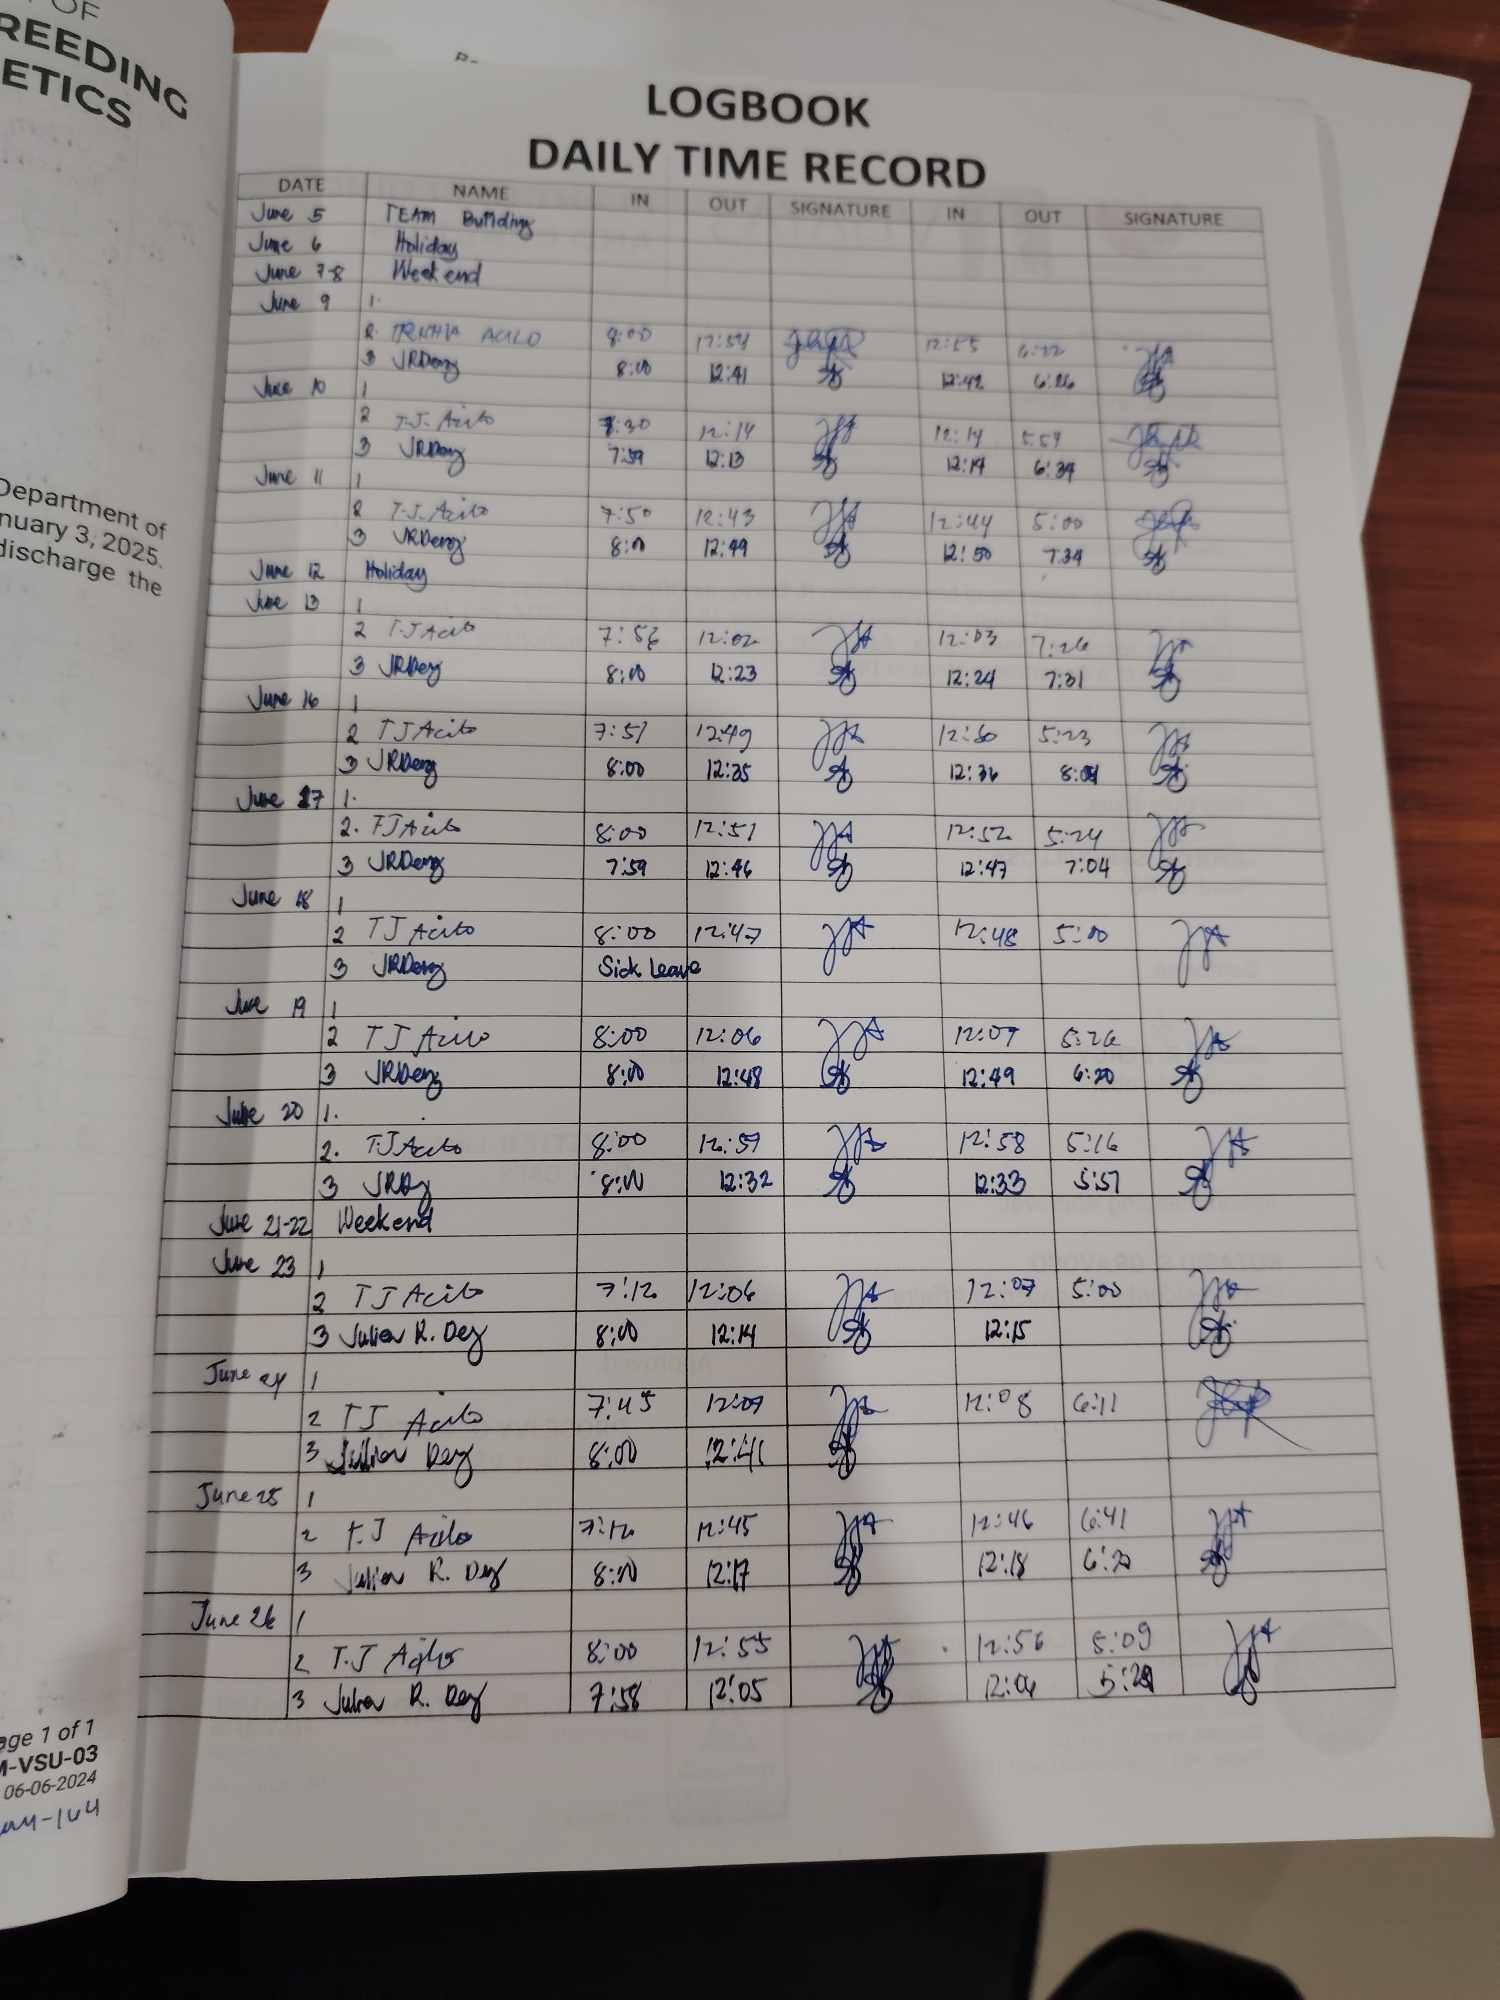 OF
REEDING
ETICS
Department of
nuary 3, 2025.
discharge the
age 1 of 1
M-VSU-03
06-06-2024
LOGBOOK
DAILY TIME RECORD
DATE NAME IN OUT SIGNATURE IN OUT SIGNATURE
June 5 TEAM Building
June 6 Holiday
June 7-8 Weekend
June 9 1.
2. 8:00 12:54 12:55
3 JRDey 8:00 12:41 12:42 6:26
June 10 1
2 T.J. Acilo 7:30 12:14 12:14 5:57
3 JRDey 7:59 12:13 12:14 6:34
June 11 1
2 T.J. Acilo 7:50 12:43 12:44 5:00
3 JRDey 8:00 12:49 12:50 7:34
June 12 Holiday
June 13 1
2 T.J Acilo 7:56 12:02 12:03 7:26
3 JRDey 8:00 12:23 12:24 7:31
June 16 1
2 TJ Acilo 7:51 12:49 12:50 5:23
3 JRDey 8:00 12:35 12:36
June 17 1.
2. TJ Acilo 8:00 12:51 12:52 5:24
3 JRDey 7:59 12:46 12:47 7:04
June 18 1
2 TJ Acilo 8:00 12:47 12:48 5:00
3 JRDey Sick Leave
June 19 1
2 TJ Acilo 8:00 12:06 12:07 5:26
3 JRDey 8:00 12:48 12:49 6:20
June 20 1.
2. TJ Acilo 8:00 12:57 12:58 5:16
3 JRDy 8:00 12:32 12:33 5:57
June 21-22 Weekend
June 23 1
2 TJ Acilo 7:12 12:06 12:07 5:00
3 Julien R. Dey 8:00 12:14 12:15
June 24 1
2 TJ Acilo 7:45 12:07 12:08 6:11
3 Julien Dey 8:00 12:41
June 25 1
2 T.J Acilo 7:12 12:45 12:46 6:41
3 Julien R. Dey 8:00 12:17 12:18 6:20
June 26 1
2 T.J Acilo 8:00 12:55 12:56 5:09
3 Julien R. Dey 7:58 12:05 12:06